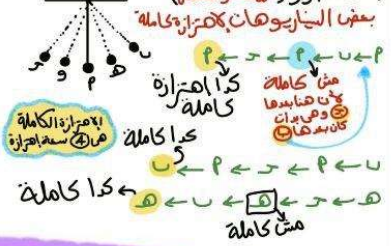 بعض السيناريوهات لاهتزازة كاملة
م ← ب ← م ← ح ← م
ح و م هـ ب
كدا اهتزازة كاملة
مش كاملة
لأن هنا بعدها
وهي بدأت
كان بعدها ب
الاهتزازة الكاملة
هى ④ سعة اهتزازة
كدا كاملة
ب ← م ← ح ← م ← ب
كدا كاملة
هـ ← ح ← هـ ← ب ← هـ
مش كاملة